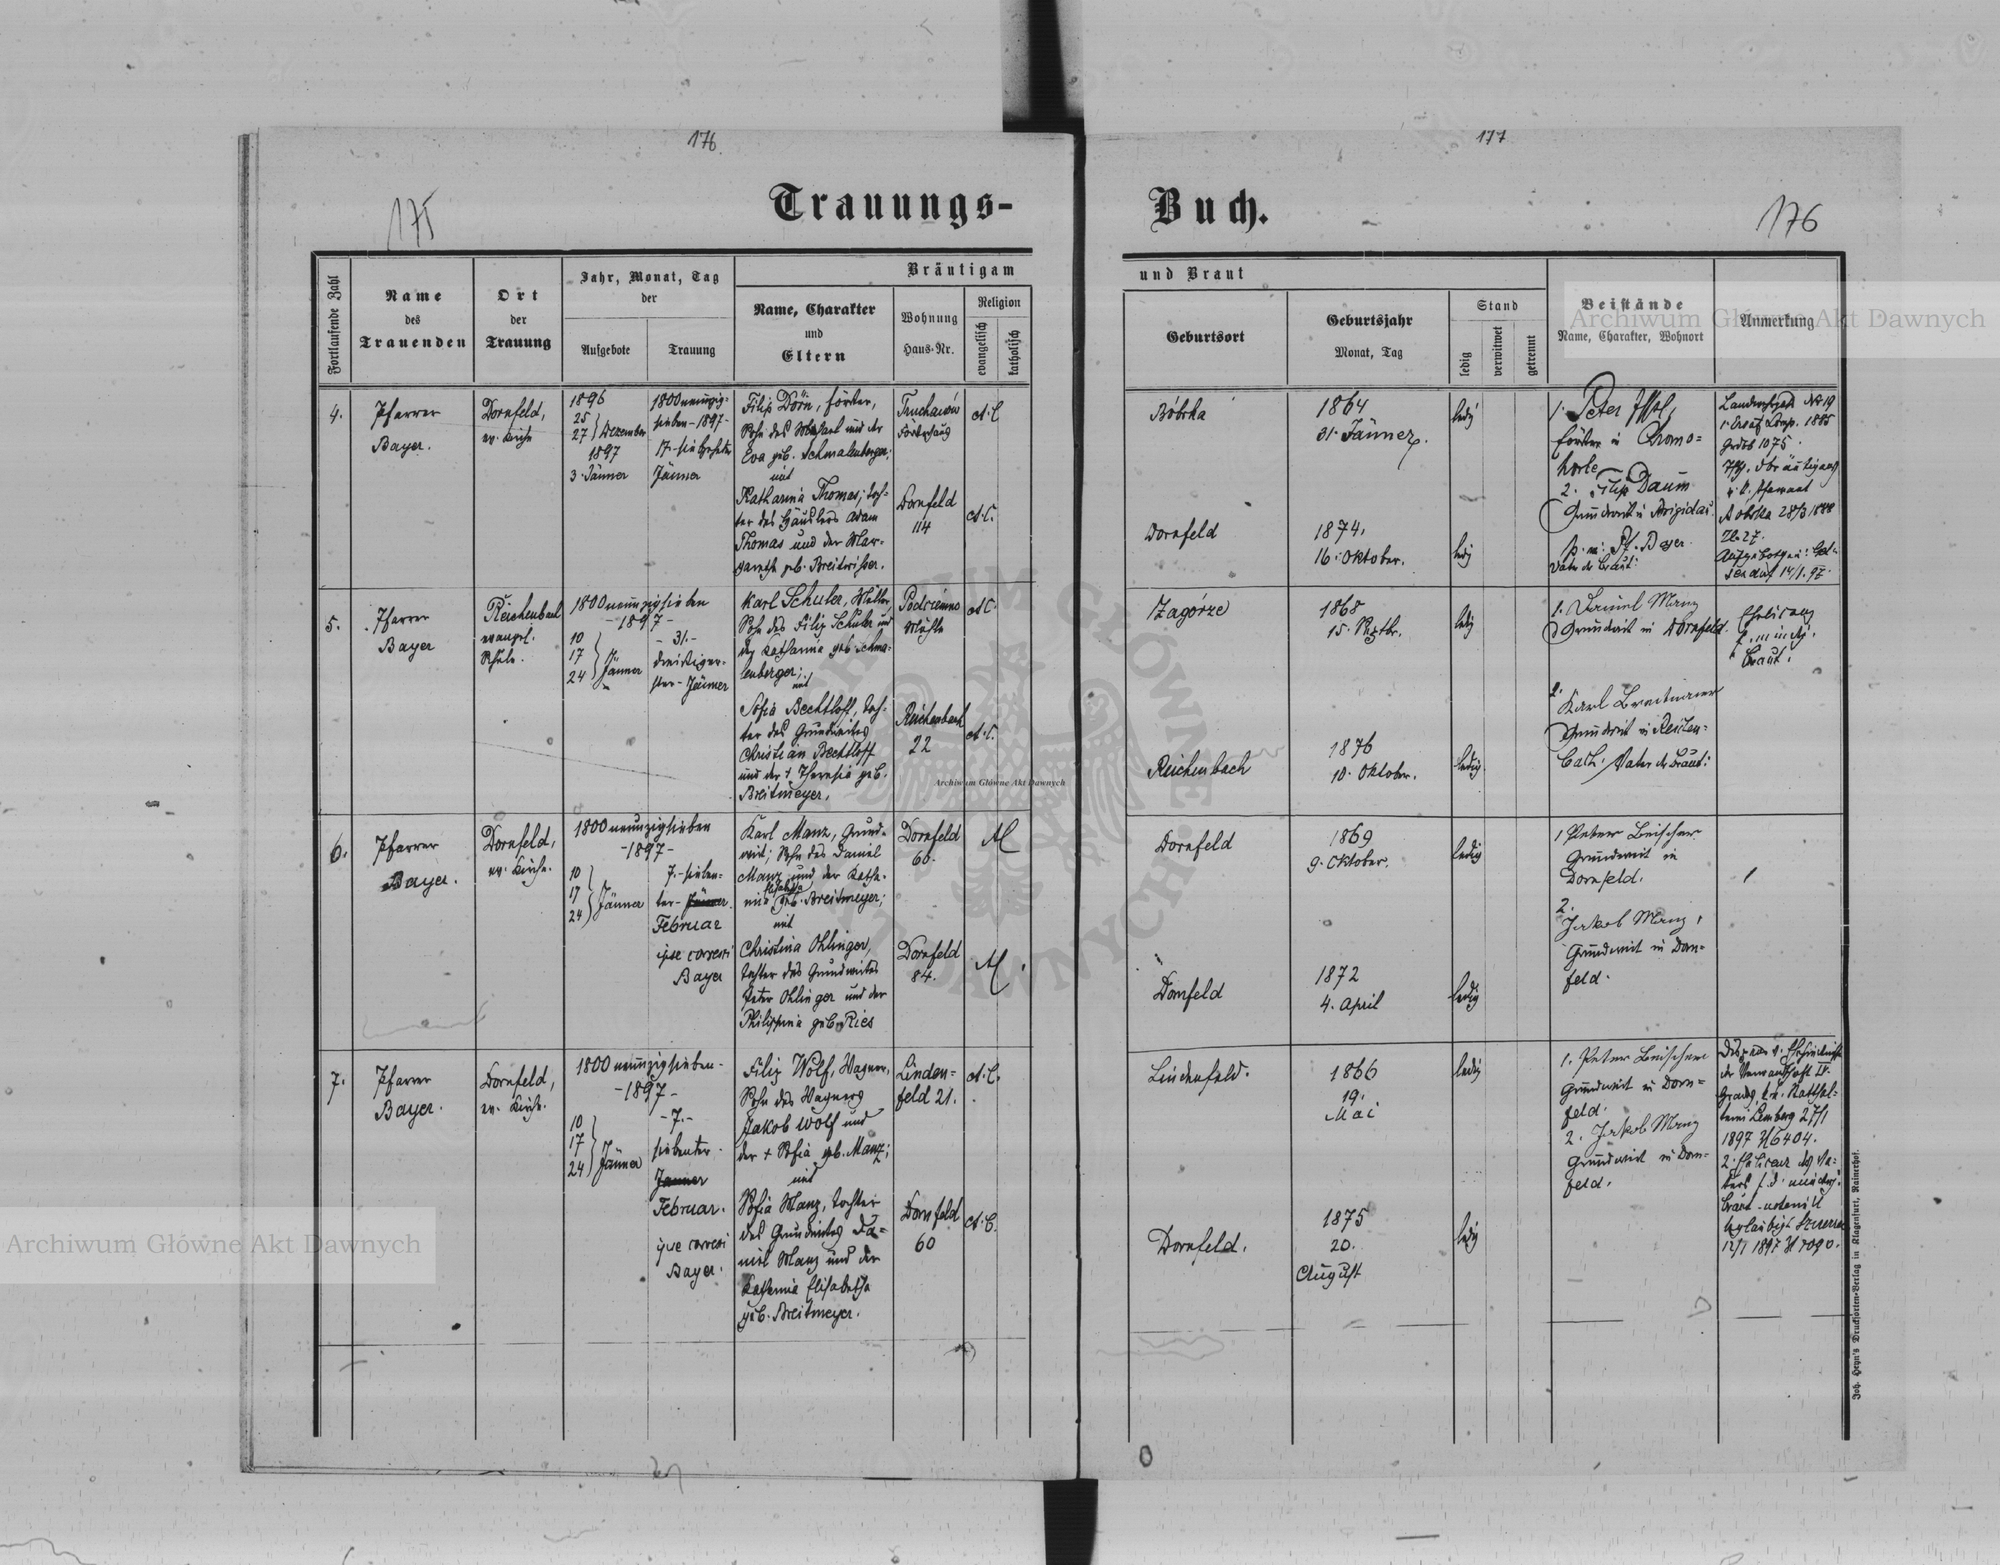 176
177
175
176
Trauungs-
Buch.
Fortlaufende Zahl
Name
des
Trauenden
Ort
der
Trauung
Jahr, Monat, Tag
der
Aufgebote
Trauung
Bräutigam
Name, Charakter
und
Eltern
Wohnung
Haus-Nr.
Religion
evangelisch
katholisch
und Braut
Geburtsort
Geburtsjahr
Monat, Tag
Stand
ledig
verwitwet
getrennt
Beistände
Name, Charakter, Wohnort
Anmerkung
4.
Pfarrer
Bayer.
Dornfeld,
ev. Kirche
1896
25
27 } Dezember
1897
3. Jänner
1800neunzig-
sieben-1897-
17.-siebzehnter
Jänner
Filip Dörn, Förster,
Sohn des Michael und der
Eva geb. Schmalenberger;
mit
Katharina Thomas, Toch-
ter des Häuslers Adam
Thomas und der Mar-
gareth geb. Breitwiser.
Truchanów
Forsthaus
Dornfeld
114
A.C.
A.C.
Bóbrka
1864
31. Jänner.
ledig
Dornfeld
1874,
16. Oktober.
ledig
1. Peter
Förster in Chromo-
horb
2. Filip Daum
Grundwirt in
p. m: Pf. Bayer
Vater der Braut:
1075
5.
Pfarrer
Bayer
Reichenbach
evangel.
Schule.
1800neunzigsieben
-1897-
10
17
24 } Jänner
-31.-
dreissiger-
ster-Jänner
Karl Schuler, Müller,
Sohn des Filip Schuler und
der Katharina geb. Schma-
lenberger;
mit
Sofia Bechtloff, Toch-
ter des Grundwirtes
Christian Bechtloff
und der + Theresia geb.
Breitmeyer.
Podciemno
Mühle
Reichenbach
22
A.C.
A.C.
Zagórze
1868
15. Septbr.
ledig
Reichenbach
1876
10. Oktober.
ledig.
1. Daniel Manz
Grundwirt in Dornfeld.
2.
Karl Breitmeier
Grundwirt in Reichen-
bach. Vater der Braut:
Braut.
6.
Pfarrer
Bayer.
Dornfeld,
ev. Kirche.
1800neunzigsieben
-1897-
10
17
24 } Jänner
7.-sieben-
ter- Jänner.
Februar
ipse correxi
Bayer
Karl Manz, Grund-
wirt; Sohn des Daniel
Manz und der Katha-
rina Elisabetha geb. Breitmeyer;
mit
Christina Ohlinger,
Tochter des Grundwirtes
Peter Ohlinger und der
Philippina geb. Ries
Dornfeld
60.
Dornfeld
84.
AC
AC.
Dornfeld
1869
9. Oktober.
ledig
Dornfeld
1872
4. April
ledig
1 Peter Beischer
Grundwirt in
Dornfeld.
2.
Jakob Manz,
Grundwirt in Dorn-
feld.
7.
Pfarrer
Bayer.
Dornfeld,
ev. Kirche.
1800neunzigsieben-
-1897-
10
17
24 } Jänner
-7.-
siebenter-
Jänner
Februar.
ipse correxi
Bayer.
Filip Wolf, Wagner,
Sohn des Wagners
Jakob Wolf und
der + Sofia geb. Manz;
mit
Sofia Manz, Tochter
des Grundwirtes Da-
niel Manz und der
Katharina Elisabetha
geb. Breitmeyer.
Linden-
feld 21.
Dornfeld
60
A.C.
A.C.
Lindenfeld.
1866
19.
Mai
ledig
Dornfeld.
1875
20.
August
ledig
1. Peter Beischer
Grundwirt in Dorn-
feld.
2. Jakob Manz
Grundwirt in Dorn-
feld.
Dispens v. Ehehindernisse
der Verwandtschaft IV.
Grades, k.k. Statthal-
terei Lemberg 27/1
1897 Z 6404.
Joh. Heyn's Drucksorten-Verlag in Klagenfurt, Rainerhof.
Archiwum Główne Akt Dawnych
Archiwum Główne Akt Dawnych
Archiwum Główne Akt Dawnych